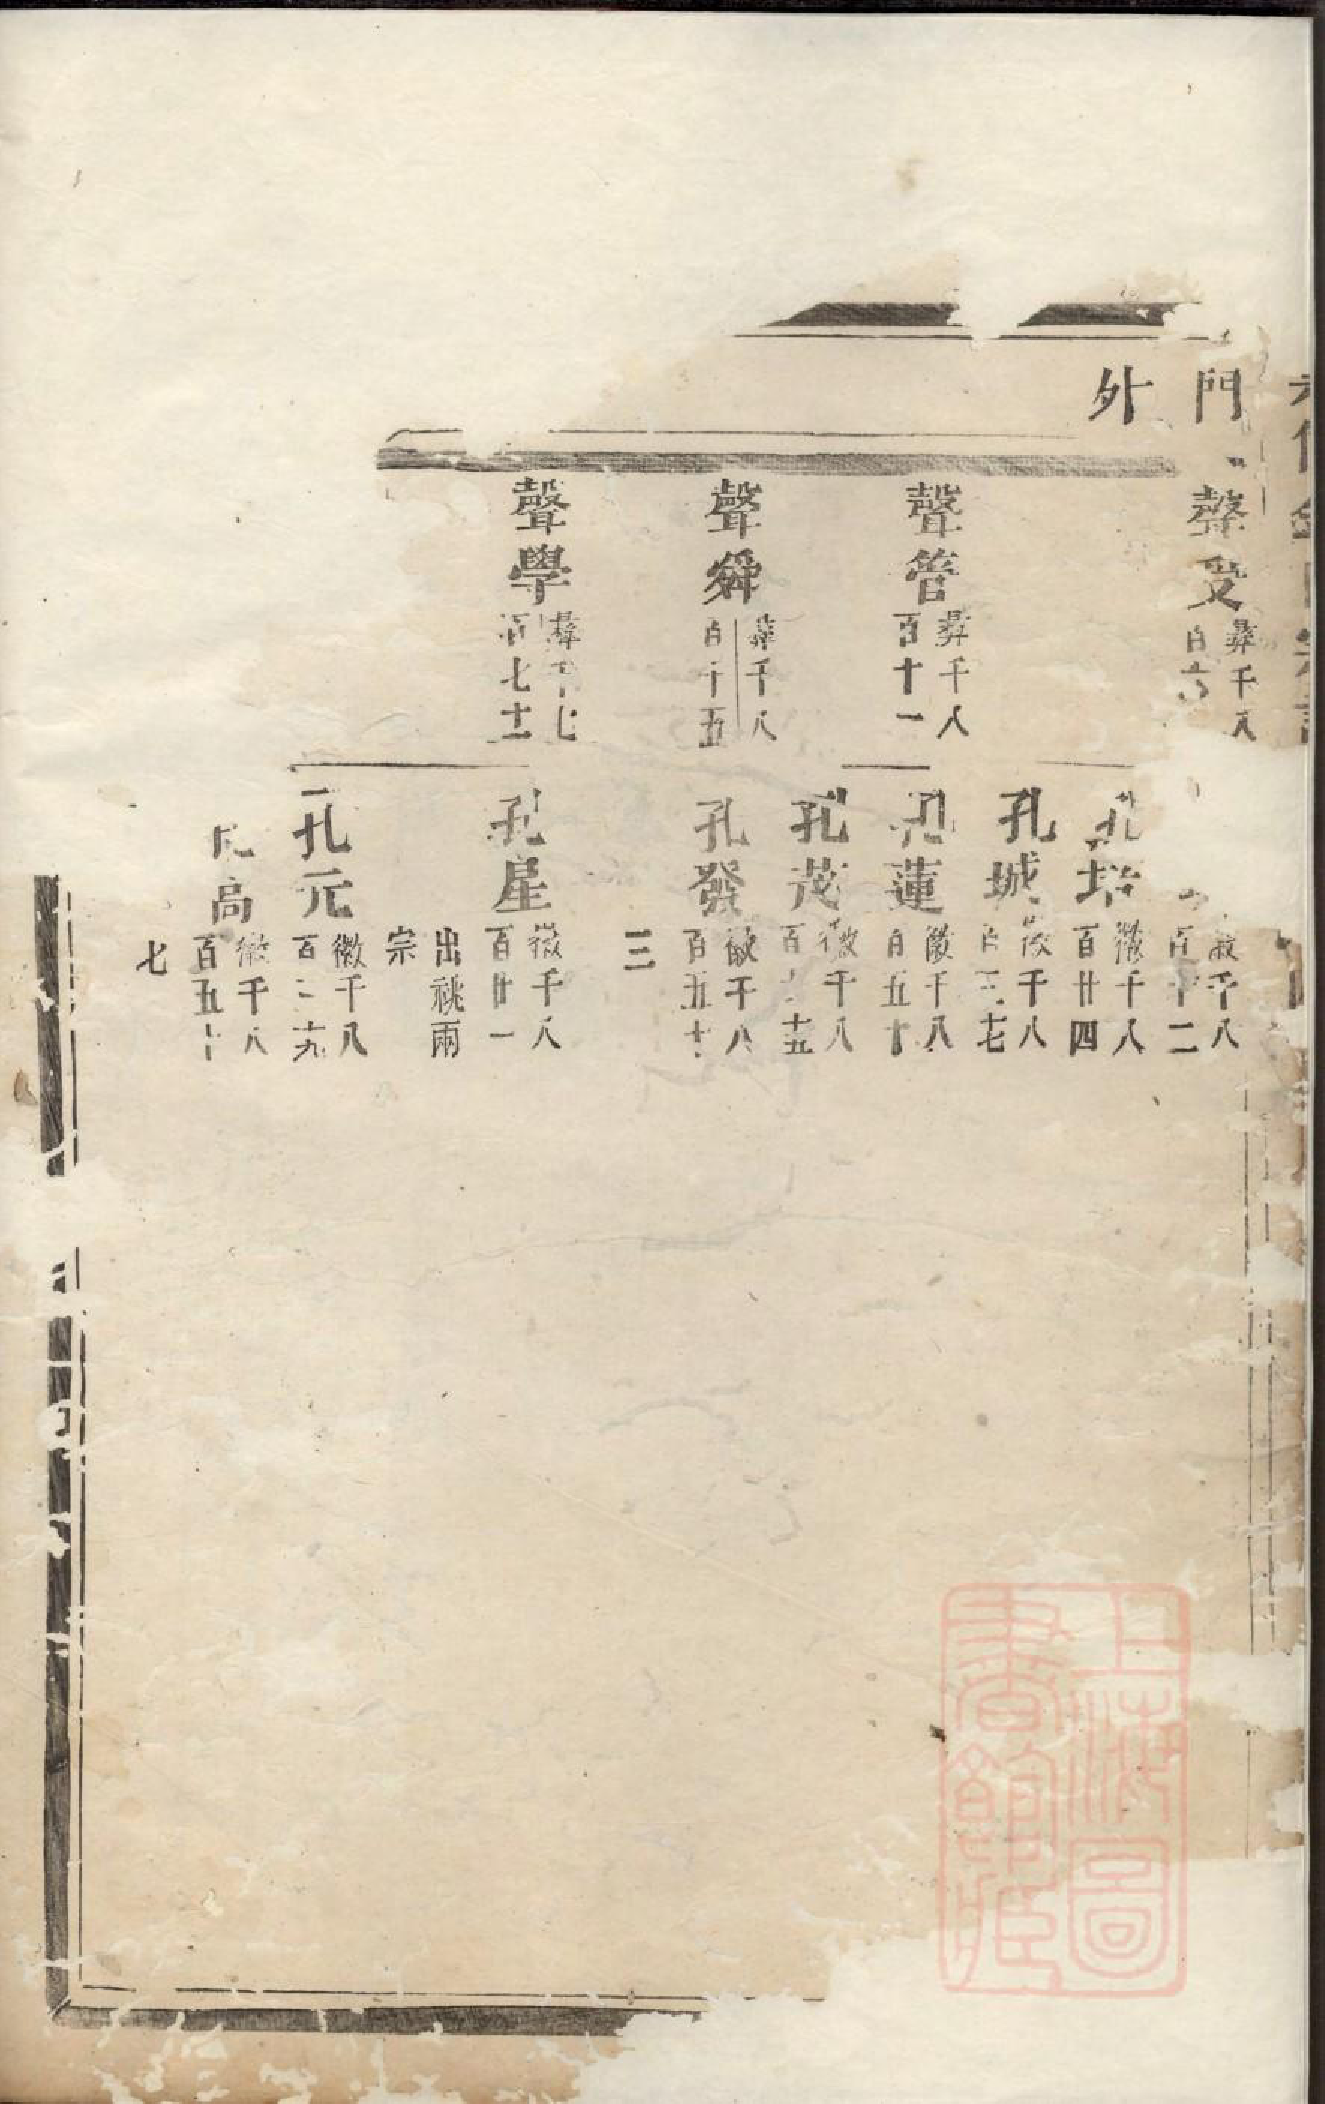 門
外
聲
彝千八
聲管
彝千八
百十一
聲舜
彝千八
百十五
聲學
彝千七
百七十二
千八
十二
孔培
徽千八
百廿四
孔城
徽千八
百三七
孔蓮
徽千八
百五十
孔茂
徽千八
百 十五
孔發
徽千八
百五十
三
孔星
徽千八
百廿一
出祧兩
宗
孔元
徽千八
百二十九
孔高
徽千八
百五十
七
上海圖
書館藏